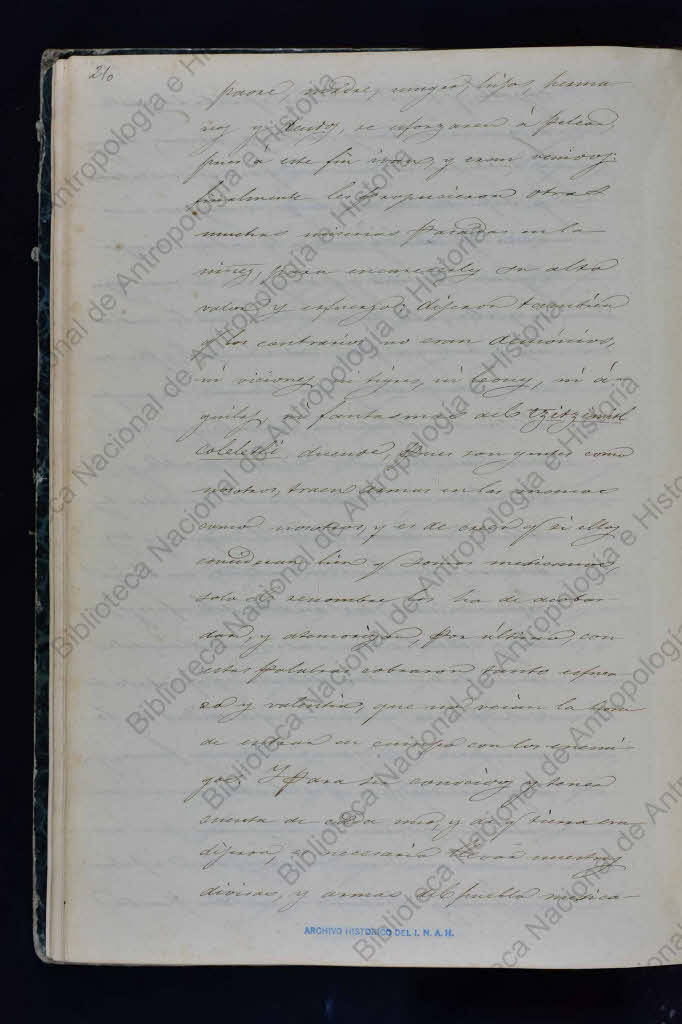 210
padre, madre, muger, hijos, herma
nos y deudos, se esforzaren á pelear
pues á este fin ivan, y eran venidos:
finalmente les propusieron otras
muchas miserias pasadas en la
niñez, para encarecerles su alto
valor y esfuerzo: dijeron tambien
q. los contrarios no eran demónios,
ni viciones, ni tigres, ni leones, ni á-
guilas, ni fantasmas del tzitzimitl
Coleletli, duende, pues son gentes como
nosotros, traen armas en las manos
como nosotros, y es de creer q. si ellos
concideran bien q. somos mexicanos,
solo el renombre los ha de acobar
dar, y atemorizar, por último, con
estas palabras cobraron tanto esfuer
zo y valentia, que no veian la hora
de entrar en campo con los enemi
gos. Y para ser conocidos y tener
cuenta de cada uno, y de q. tierra era
dijeron, es necesario llevar nuestras
divisas, y armas del pueblo mexica
ARCHIVO HISTORICO DEL I. N. A. H.
Biblioteca Nacional de Antropología e Historia